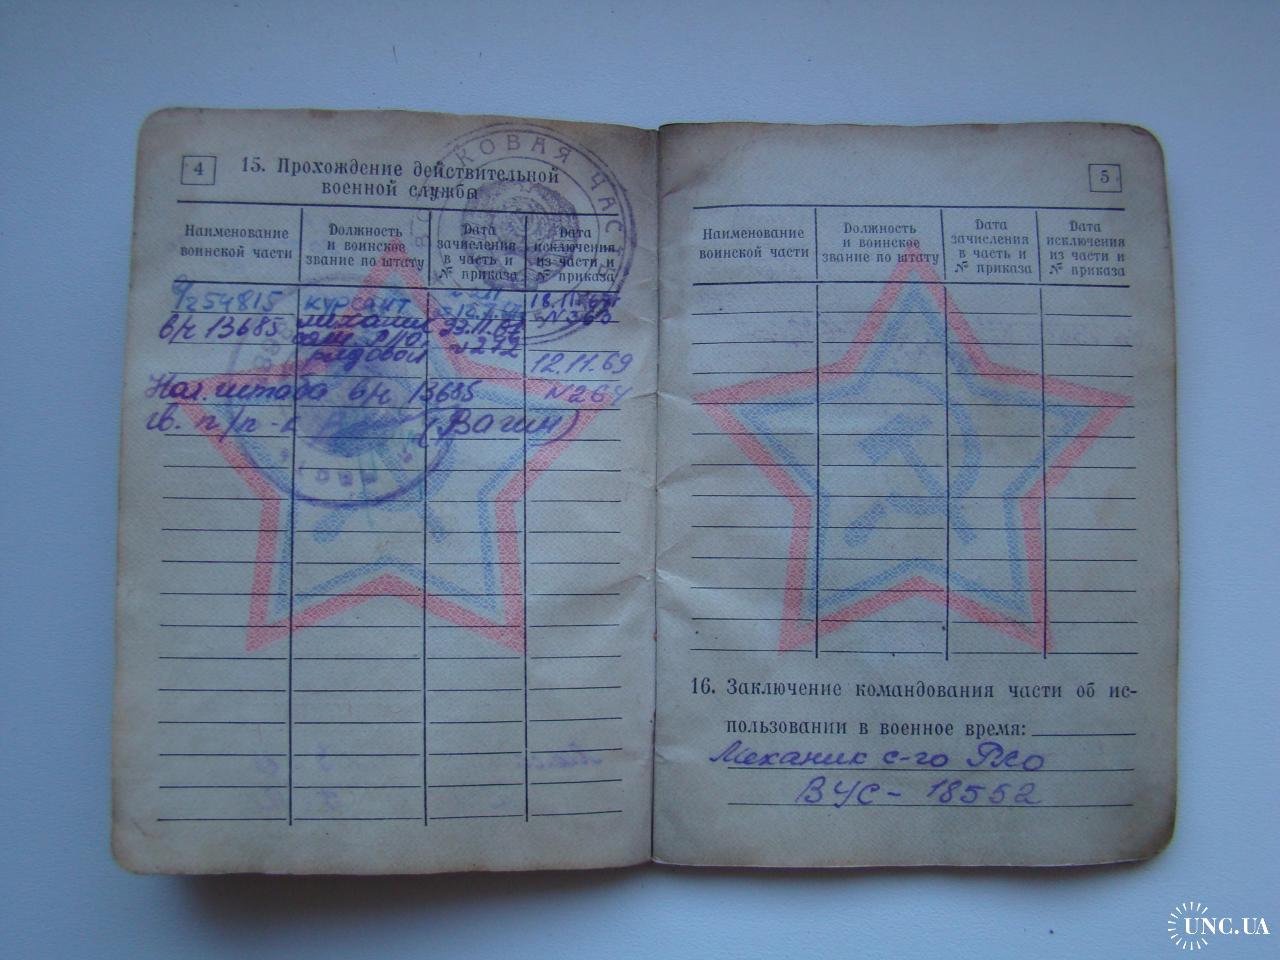 4
15. Прохождение действительной
военной службы
Наименование
воинской части
Должность
и воинское
звание по штату
Дата
зачисления
в часть и
№ приказа
Дата
исключения
из части и
№ приказа
КОВАЯ ЧАСТ
в/ч 54815 курсант 18.11.
в/ч 13685 механик 23.11.67
рядовой №272 12.11.69
Нач. штаба в/ч 13685 №264
гв. п/п-к (Вагин)
5
Наименование
воинской части
Должность
и воинское
звание по штату
Дата
зачисления
в часть и
№ приказа
Дата
исключения
из части и
№ приказа
16. Заключение командования части об ис-
пользовании в военное время:
Механик с-го РХО
ВУС - 18552
UNC.UA